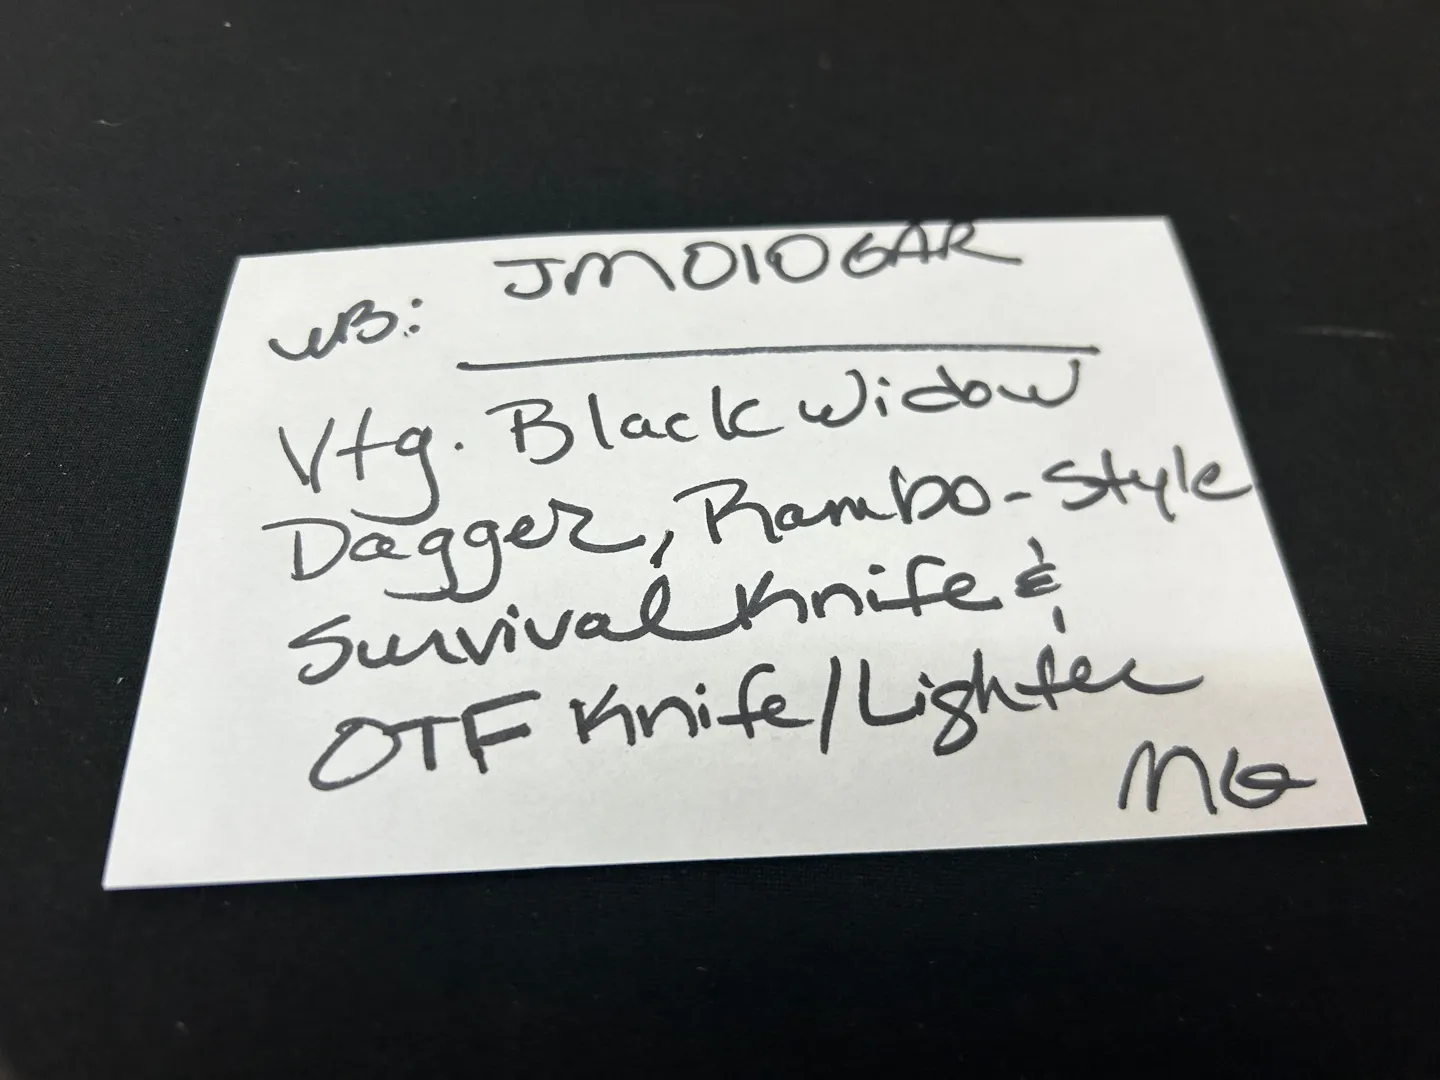 WB: JM0106AR
Vtg. Black Widow
Dagger, Rambo-Style
Survival Knife &
OTF Knife/Lighter
MG